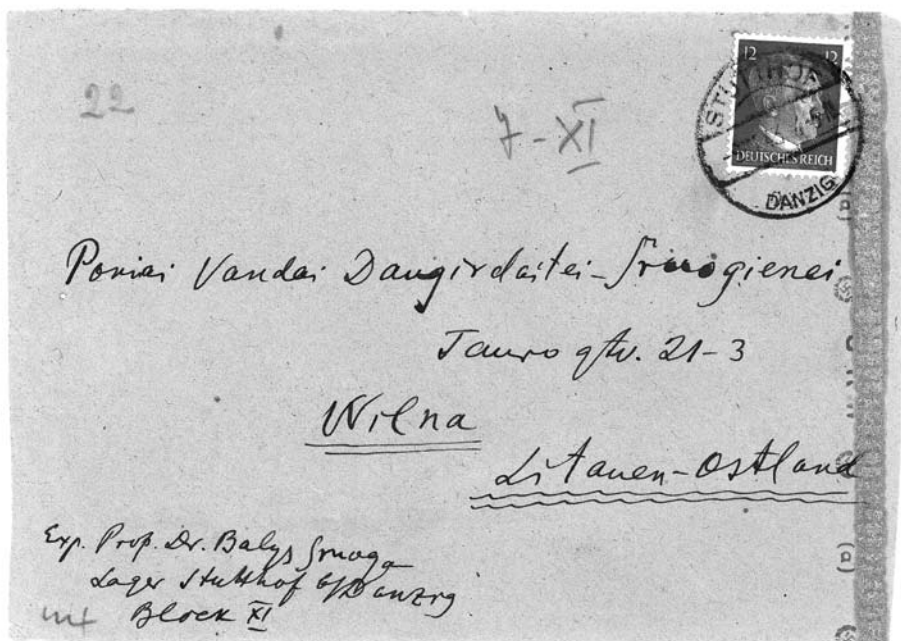 22
7-XI
12 12
STUTTHOF
DEUTSCHES REICH
DANZIG
(a)
Poniai Vandai Daugirdaitei-Sruogienei
Tauro gtv. 21-3
Wilna
Litauen-Ostland
Exp. Prof. Dr. Balys Sruoga
Lager Stutthof b/Danzig
Block XI
(a)